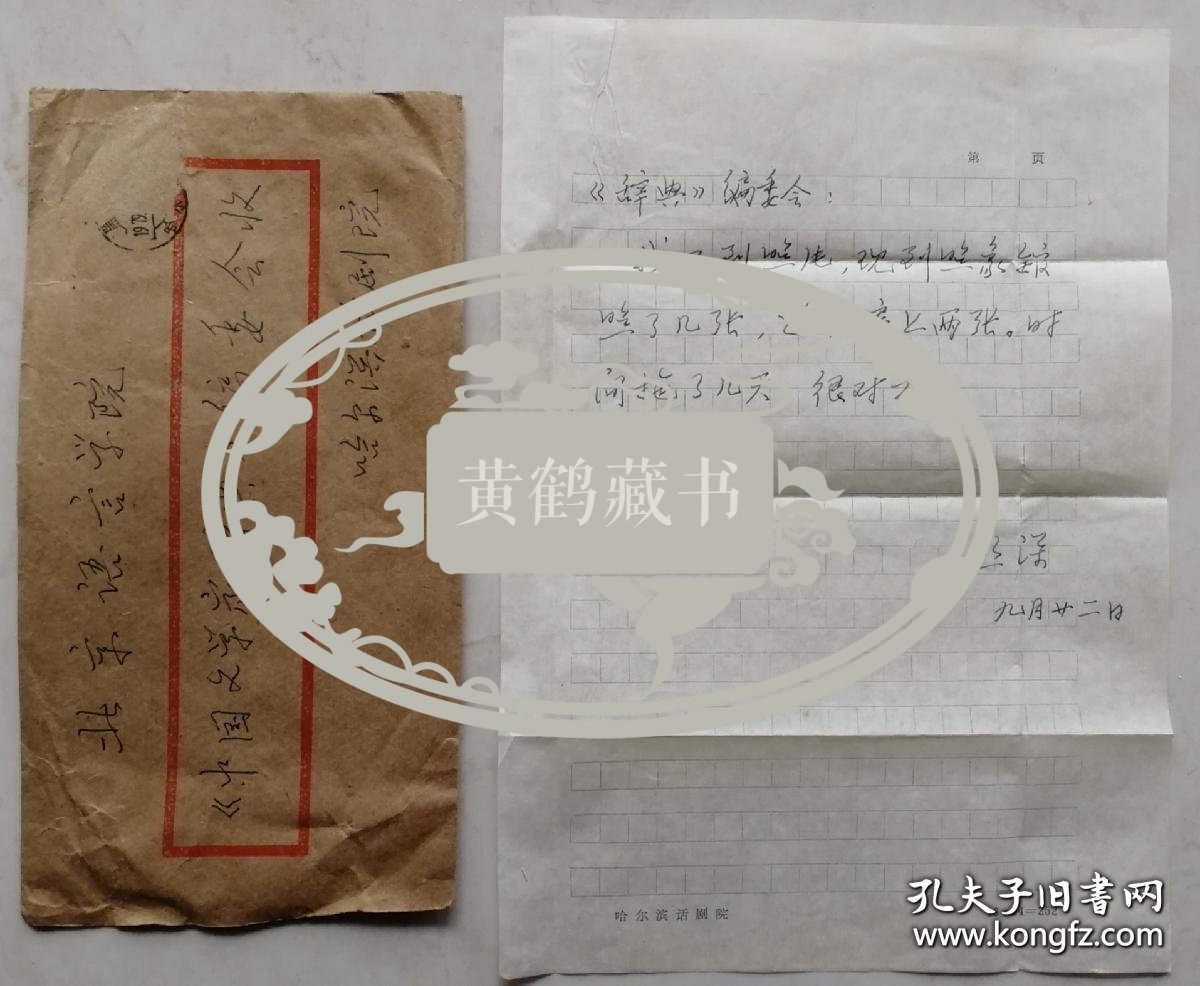 北京语言学院
《中国文学家 编委会收
哈尔滨 剧院
第 页
《辞典》编委会：
到照片，现到照象馆
照了几张， 上两张。时
间拖了几天 很对
深
九月廿二日
哈尔滨话剧院
黄鹤藏书
孔夫子旧书网
www.kongfz.com